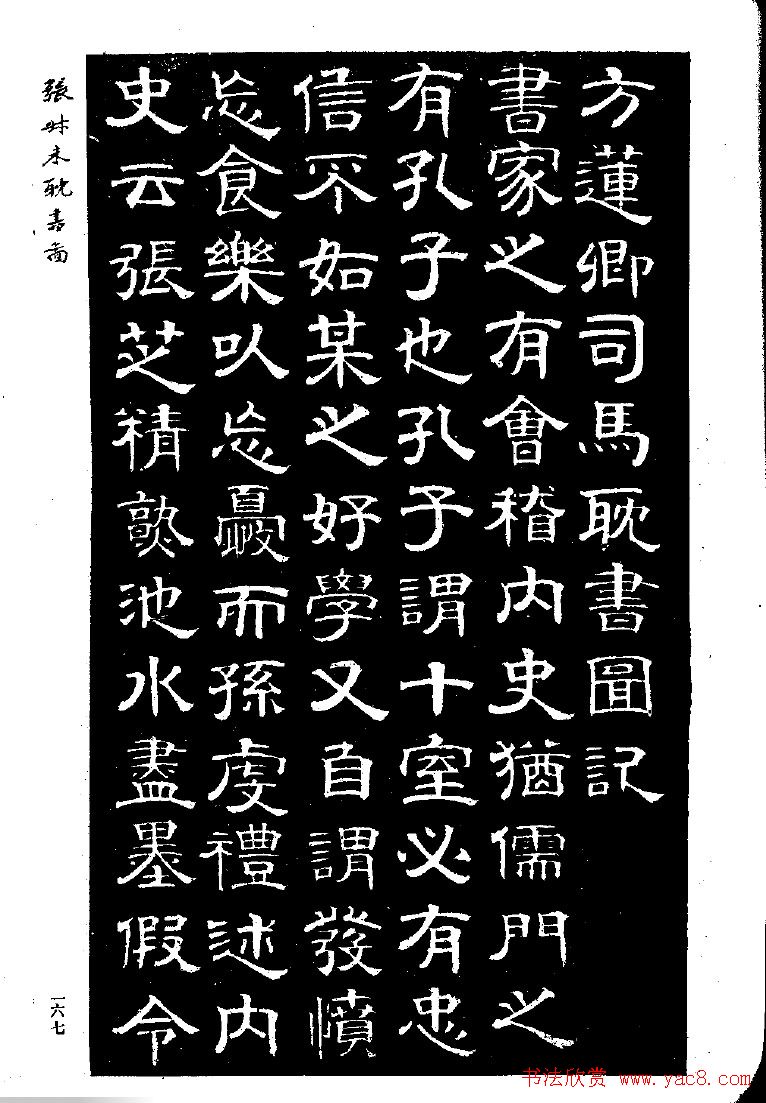 方蓮卿司馬耽書圖記
書家之有會稽內史猶儒門之
有孔子也孔子謂十室必有忠
信不如某之好學又自謂發憤
忘食樂以忘憂而孫虔禮述內
史云張芝精熟池水盡墨假令
張叔未耽書圖
一六七
书法欣赏 www.yac8.com